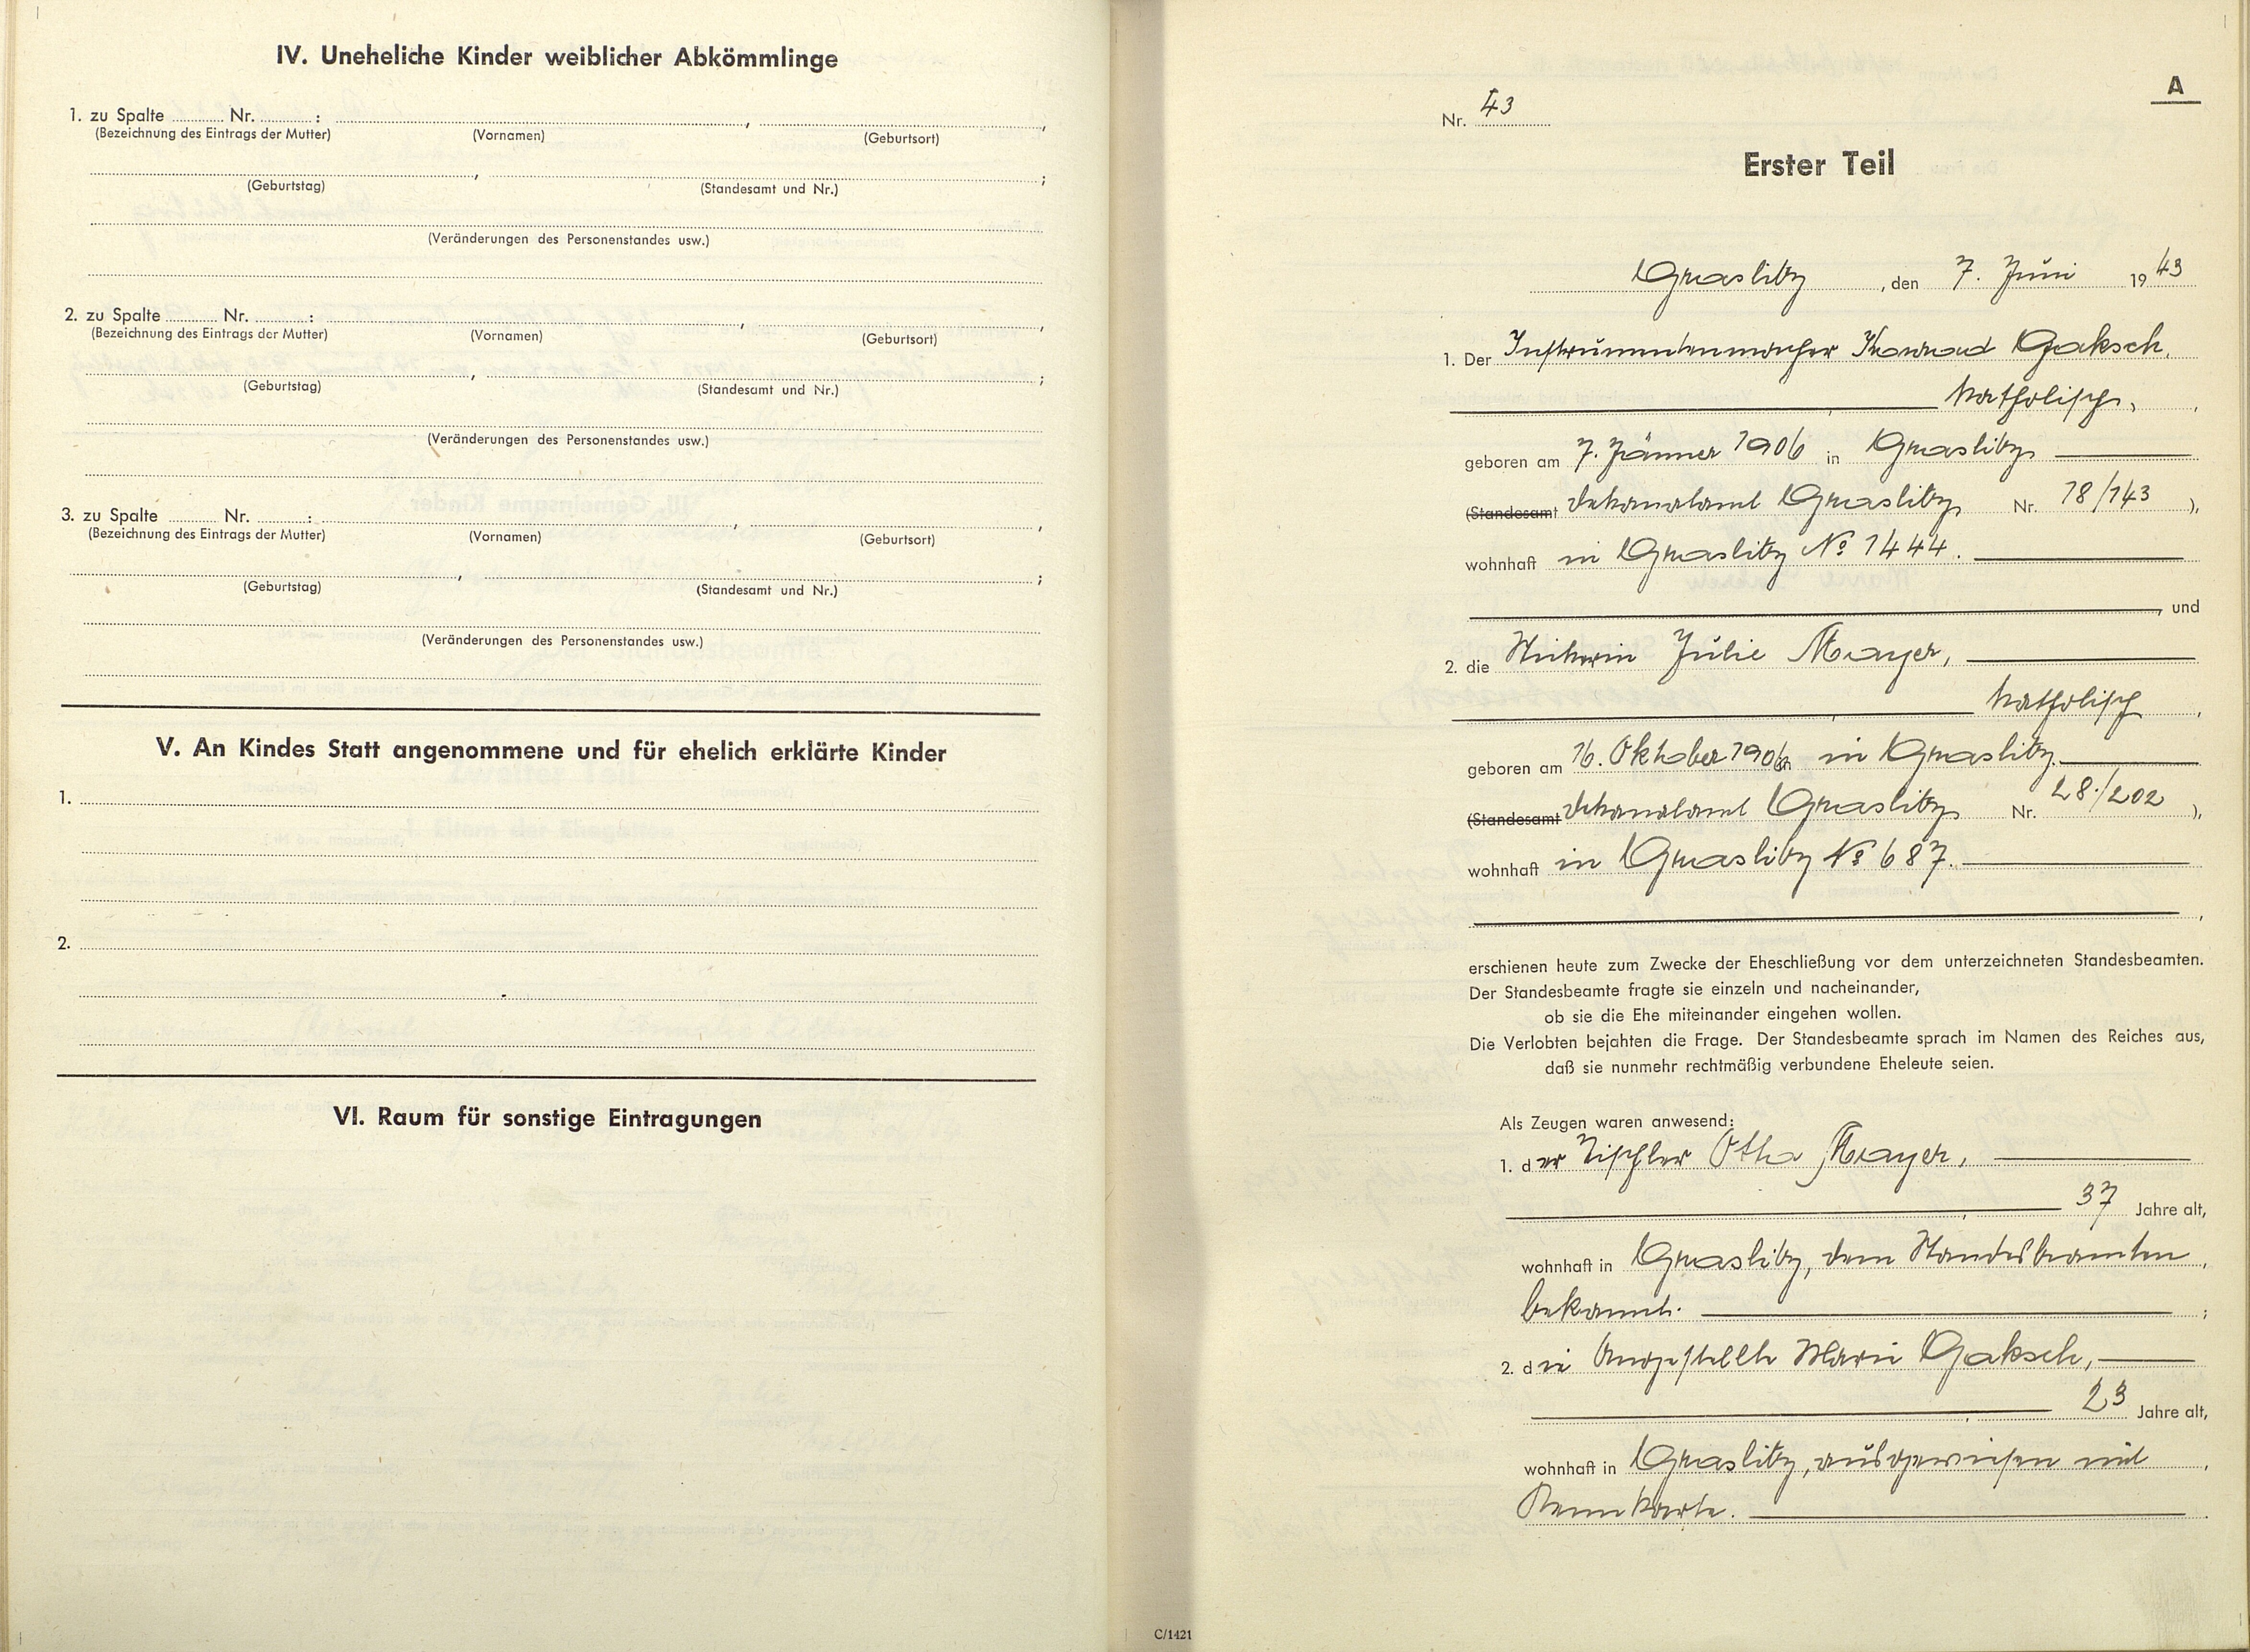 IV. Uneheliche Kinder weiblicher Abkömmlinge
1. zu Spalte ........ Nr. ........ : ........ , ........ ,
(Bezeichnung des Eintrags der Mutter) (Vornamen) (Geburtsort)
........ , ........ ;
(Geburtstag) (Standesamt und Nr.)
(Veränderungen des Personenstandes usw.)
2. zu Spalte ........ Nr. ........ : ........ , ........ ,
(Bezeichnung des Eintrags der Mutter) (Vornamen) (Geburtsort)
........ , ........ ;
(Geburtstag) (Standesamt und Nr.)
(Veränderungen des Personenstandes usw.)
3. zu Spalte ........ Nr. ........ : ........ , ........ ,
(Bezeichnung des Eintrags der Mutter) (Vornamen) (Geburtsort)
........ , ........ ;
(Geburtstag) (Standesamt und Nr.)
(Veränderungen des Personenstandes usw.)
V. An Kindes Statt angenommene und für ehelich erklärte Kinder
1.
2.
VI. Raum für sonstige Eintragungen
A
Nr. 43
Erster Teil
Graslitz, den 7. Juni 1943
1. Der Instrumentenmacher Konrad Gaksch,
katholisch,
geboren am 7. Jänner 1906 in Graslitz
(Standesamt Dekanalamt Graslitz Nr. 18/143),
wohnhaft in Graslitz No 1444.
, und
2. die Stickerin Julie Mayer,
katholisch,
geboren am 16. Oktober 1906 in Graslitz
(Standesamt Dekanalamt Graslitz Nr. 28./202),
wohnhaft in Graslitz No 687.
erschienen heute zum Zwecke der Eheschließung vor dem unterzeichneten Standesbeamten.
Der Standesbeamte fragte sie einzeln und nacheinander,
ob sie die Ehe miteinander eingehen wollen.
Die Verlobten bejahten die Frage. Der Standesbeamte sprach im Namen des Reiches aus,
daß sie nunmehr rechtmäßig verbundene Eheleute seien.
Als Zeugen waren anwesend:
1. der Tischler Otto Mayer,
37 Jahre alt,
wohnhaft in Graslitz, dem Standesbeamten,
bekannt. ;
2. die Angestellte Marie Gaksch,
23 Jahre alt,
wohnhaft in Graslitz, ausgewiesen mit,
Kennkarte.
C/1421